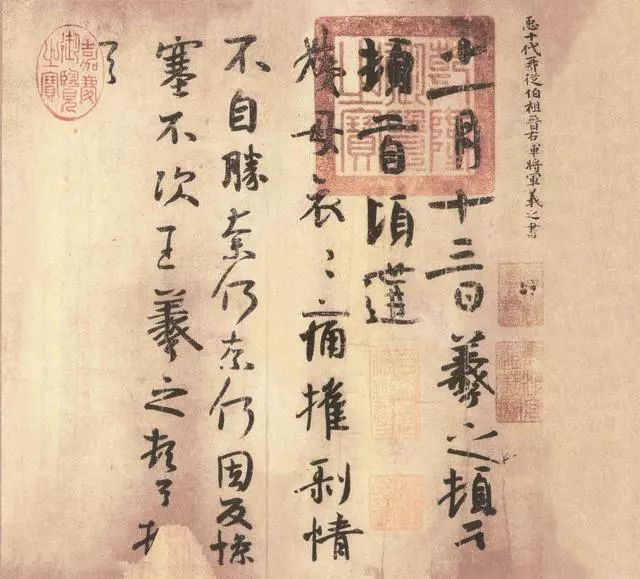 臣十代再從伯祖晉右軍將軍羲之書
十一月十三日羲之頓首
頓首頃遘
姨母哀々痛摧剝情
不自勝奈何奈何因反慘
塞不次王羲之頓首頓
首
乾隆御覽之寶
嘉慶御覽之寶